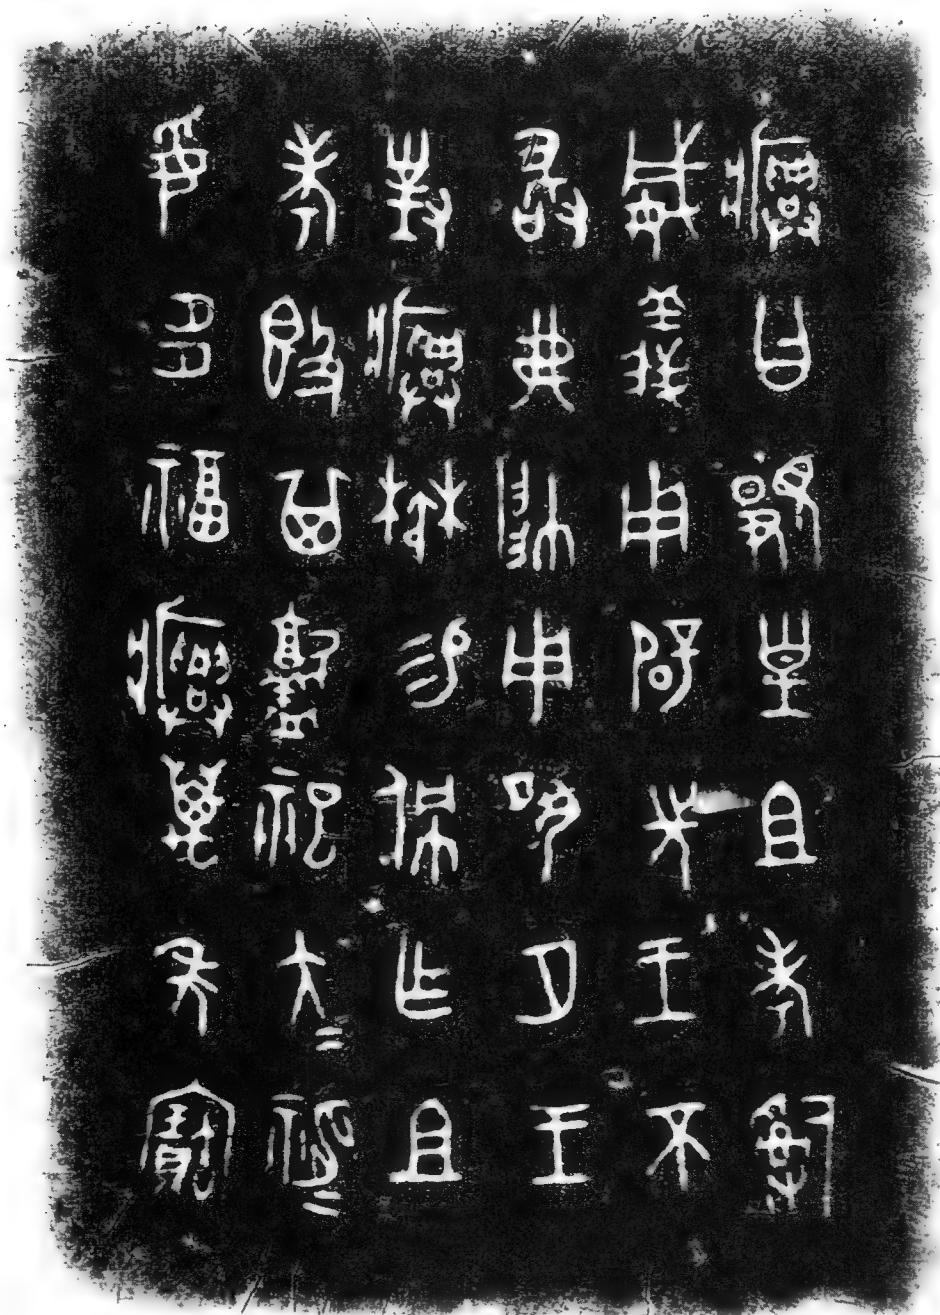 𤼈曰䫉皇且考𤔲
威義用辟先王不
敢弗帥用夙夕王
對𤼈楙易佩乍且
考𣪘其𩫨祀大=神=
妥多福𤼈萬年寶